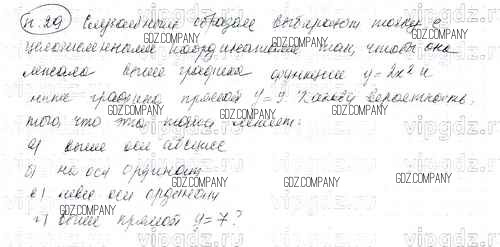 п. 29) Случайным образом выбирают точку с
целочисленными координатами так, чтобы она
лежала выше графика функции y=2x² и
ниже графика прямой y=9. Какова вероятность,
того, что эта точка лежит:
а) выше оси абсцисс
б) на оси ординат
в) левее оси ординат
г) выше прямой y=7?
GDZ.COMPANY
GDZ.COMPANY
GDZ.COMPANY
GDZ.COMPANY
GDZ.COMPANY
GDZ.COMPANY
GDZ.COMPANY
GDZ.COMPANY
GDZ.COMPANY
vipgdz.ru